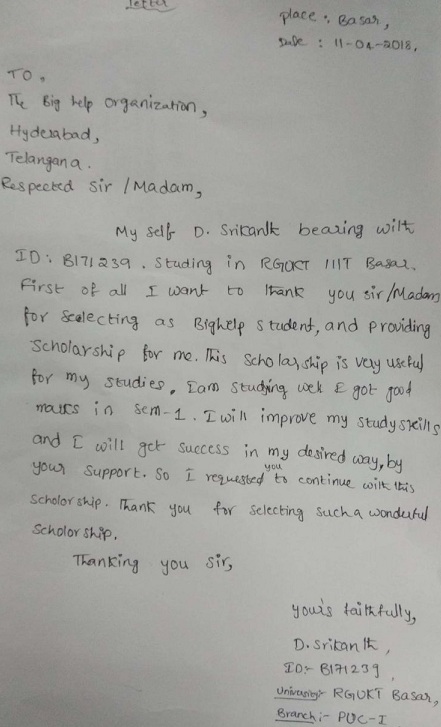 letter
place : Basar,
Date : 11-04-2018.
TO,
The Big help organization,
Hyderabad,
Telangana.
Respected Sir / Madam,
My self D. Srikanth bearing with
ID: B171239. Studing in RGUKT IIIT Basar.
First of all I want to thank you sir/Madam
for Seelecting as Bighelp student, and providing
Scholarship for me. This Scholarship is very useful
for my studies, Iam studying well & got good
marks in sem-1. I will improve my studyskills
and I will get success in my desired way, by
your support. So I requested you to continue with this
Scholorship. Thank you for selecting such a wonderful
Scholorship.
Thanking you Sir,
your's faithfully,
D. Srikanth,
ID:- B171239,
University:- RGUKT Basar,
Branch:- PUC-I